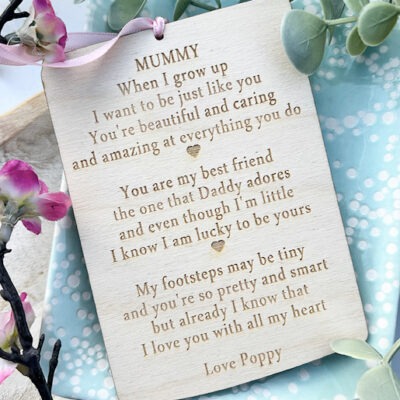 MUMMY
When I grow up
I want to be just like you
You're beautiful and caring
and amazing at everything you do
You are my best friend
the one that Daddy adores
and even though I'm little
I know I am lucky to be yours
My footsteps may be tiny
and you're so pretty and smart
but already I know that
I love you with all my heart
Love Poppy